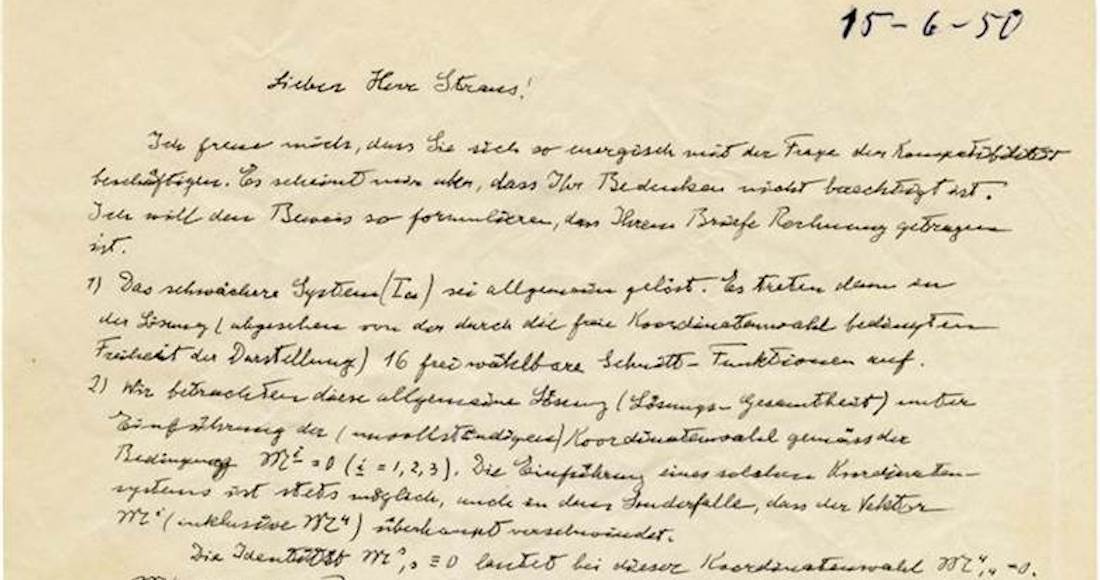 15-6-50
Lieber Herr Straus!
Ich freue mich, dass Sie sich so energisch mit der Frage der Kompatibilität
beschäftigen. Es scheint mir aber, dass Ihr Bedenken nicht berechtigt ist.
Ich will den Beweis so formulieren, dass Ihrem Briefe Rechnung getragen
ist.
1) Das schwächere System (Ia) sei allgemein gelöst. Es treten dann in
der Lösung (abgesehen von der durch die freie Koordinatenwahl bedingten
Freiheit der Darstellung) 16 frei wählbare Schnitt-Funktionen auf.
2) Wir betrachten diese allgemeine Lösung (Lösungs-Gesamtheit) unter
Einführung der (unvollständigen) Koordinatenwahl gemäss der
Bedingung 𝔐ⁱ = 0 (i = 1, 2, 3). Die Einführung eines solchen Koordinaten-
systems ist stets möglich, auch in dem Sonderfalle, dass der Vektor
𝔐ˢ (inklusive 𝔐⁴) überhaupt verschwindet.
Die Identität 𝔐ˢ,ₛ ≡ 0 lautet bei dieser Koordinatenwahl 𝔐⁴,₄ = 0.